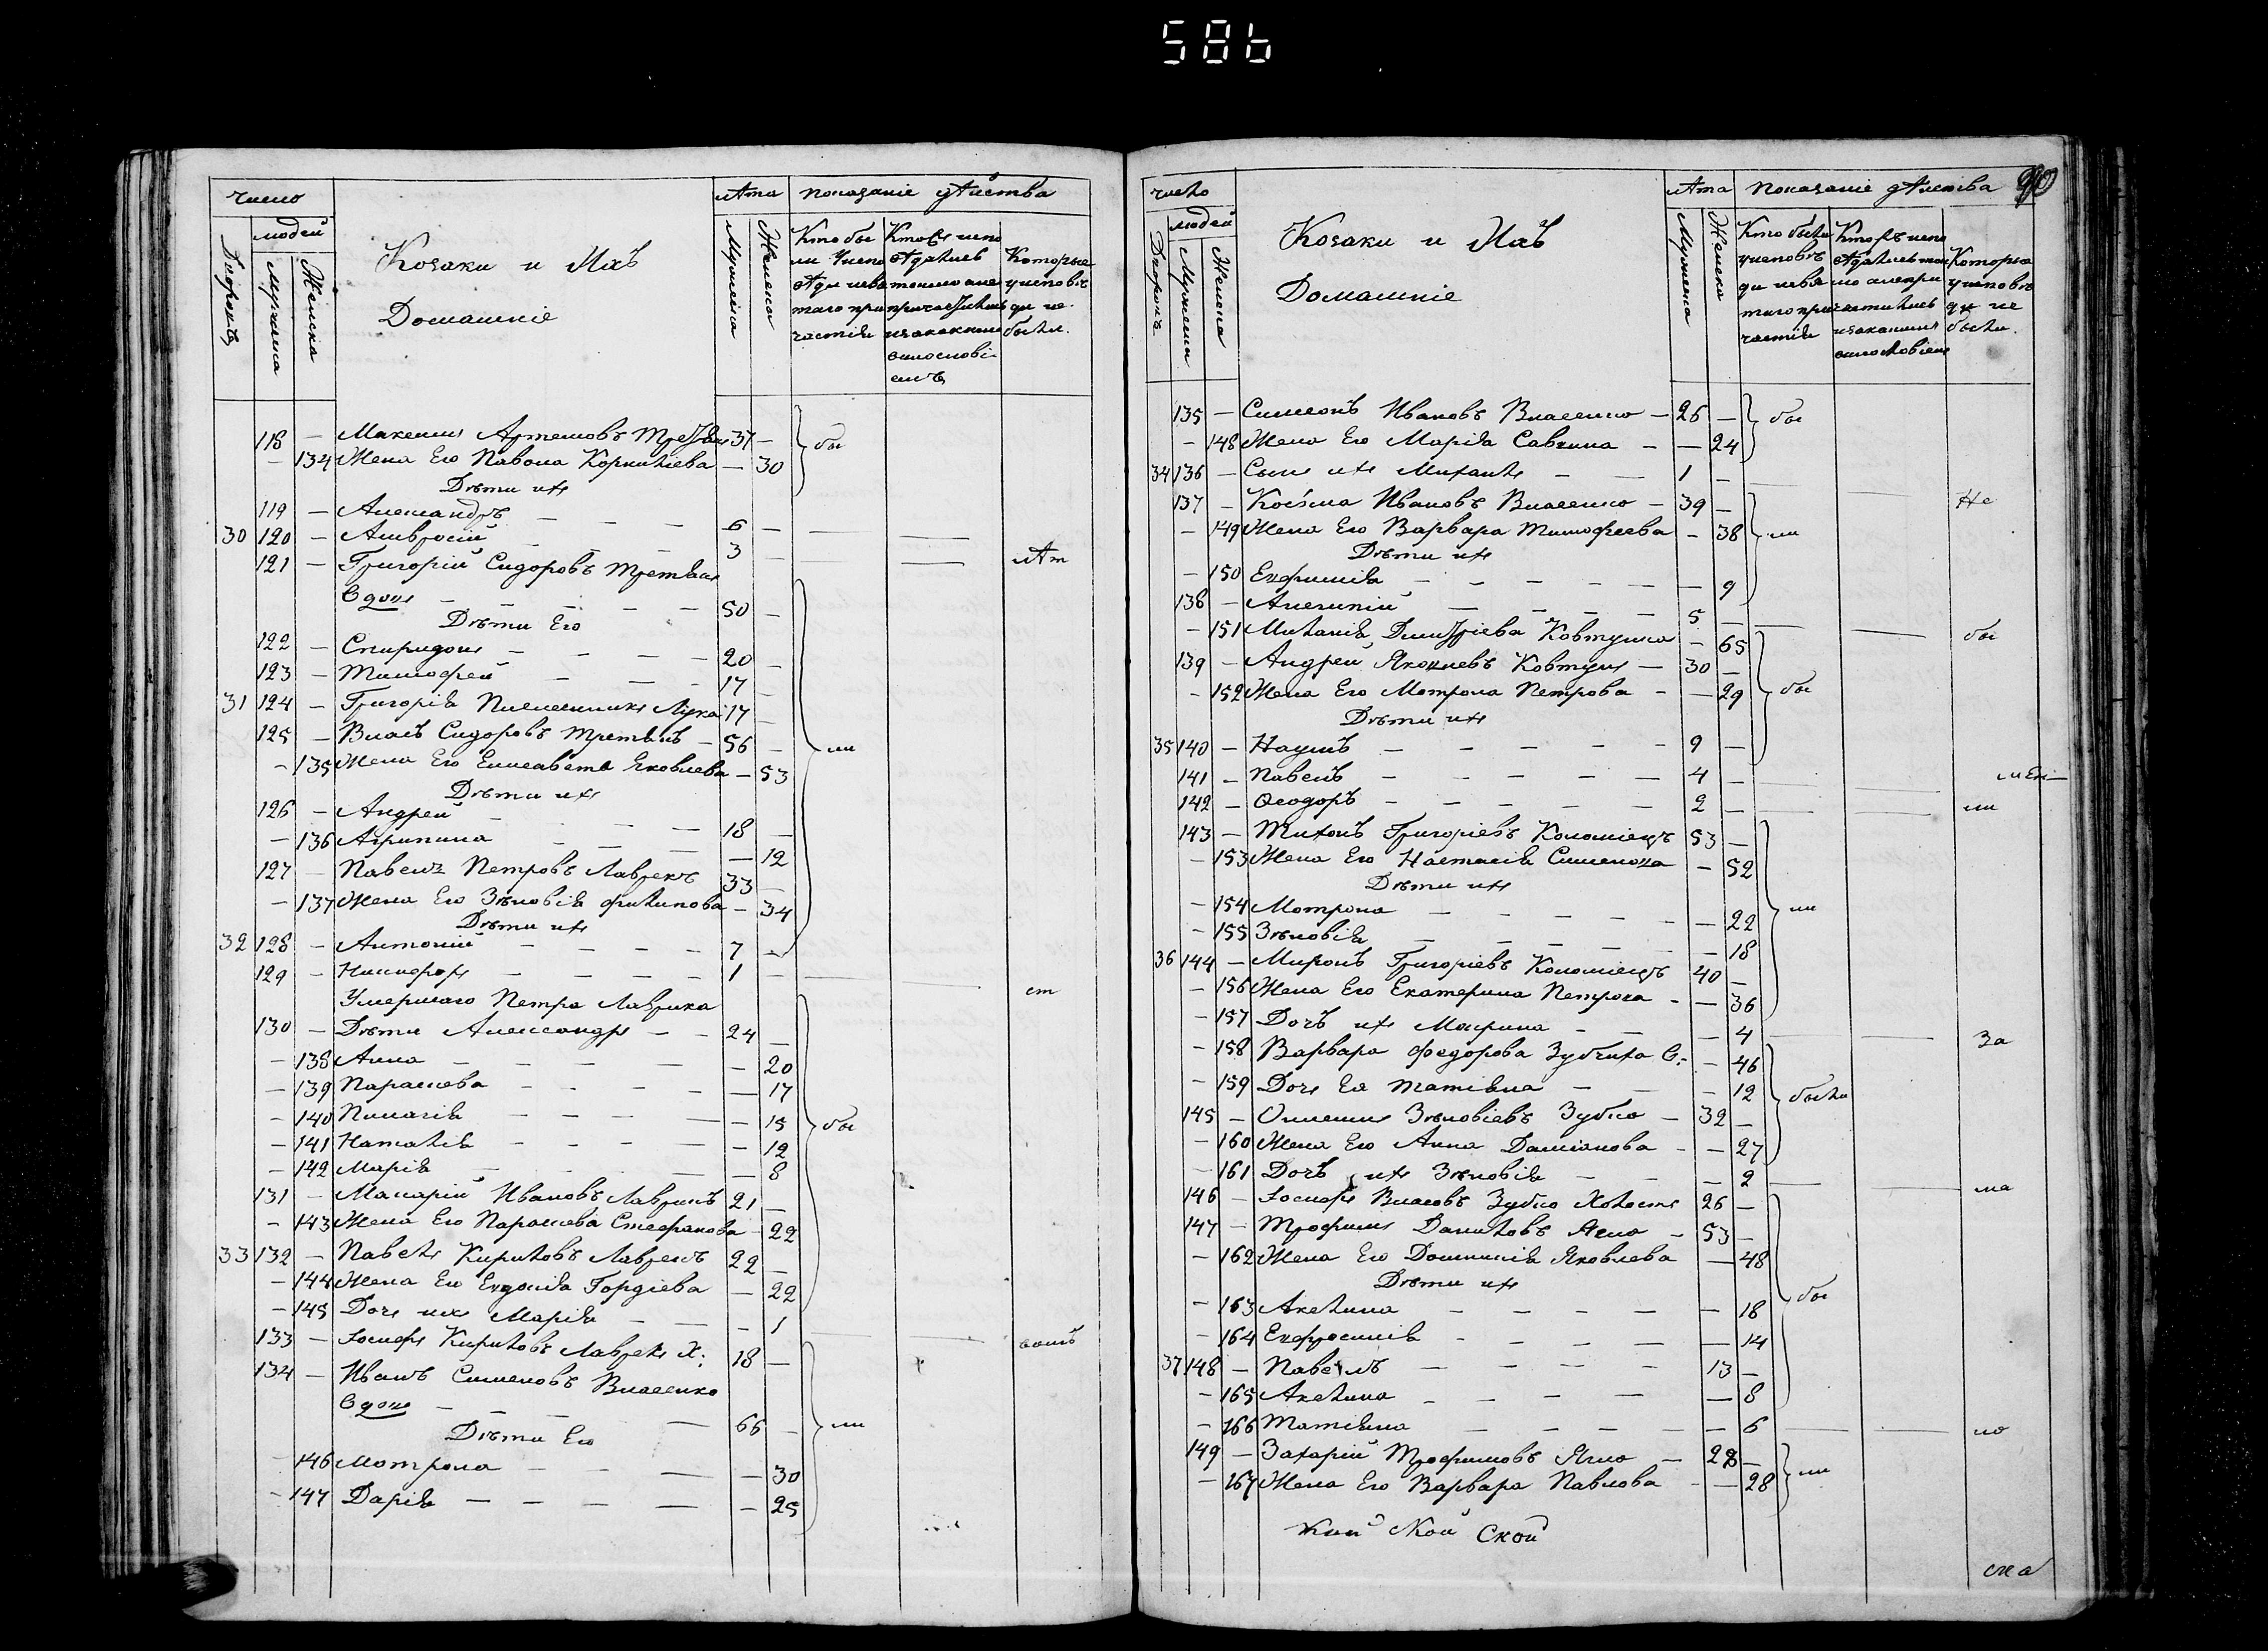 586
число
людей
Дворовъ
Мужеска
Женска
Козаки и Ихъ
Домашніе
лѣта
Мужеска
Женска
показаніе дѣйства
Которые
были.
118 — Максимъ Артемовъ 37 —
— 134 Жена Его Павола Корнилієва — 30
Дѣти ихъ
119 — Александръ — — — 6 —
30 120 — Амвросій — — — 3 —
лѣт
121 — Григорій Сидоровъ Третякъ
Вдовъ — — — — — 50 —
Дѣти Его
122 — Спиридонъ — — — — 20 —
123 — Тимофей — — — 17 —
31 124 — Григорія Племенникъ Лука 17 —
125 — Власъ Сидоровъ Третякъ — 56 —
ли
— 135 Жена Его Елисавета Яковлева — 53
Дѣти ихъ
126 — Андрей — — — — 18 —
— 136 Агрипина — — — — 12
127 — Павелъ Петровъ Лаврикъ 33 —
— 137 Жена Его Зѣновія Филипова — 34
Дѣти ихъ
32 128 — Антоній — — — — 7 —
129 — Никифоръ — — — — 1 —
ст
Умершаго Петра Лаврика
130 — Дѣти Александръ — — 24 —
— 138 Анна — — — — — 20
— 139 Параскева — — — — 17
— 140 Пелагія — — — — 15
бы
— 141 Наталія — — — — — 12
— 142 Марія — — — — 8
131 — Макарій Ивановъ Лаврикъ 21 —
— 143 Жена Его Параскева Стефанова — 22
33 132 — Павелъ Кириловъ Лаврикъ 22 —
— 144 Жена Его Евдокія Гордіева — 22
— 145 Дочь ихъ Марія — — — 1
133 — Іосифъ Кириловъ Лаврикъ Х: 18 —
134 — Иванъ Сименовъ Власенко
Вдовъ — — — — 66 —
ли
Дѣти Его
— 146 Мотрона — — — — 30
— 147 Дарія — — — — — 25
число
людей
Дворовъ
Мужеска
Женска
Козаки и Ихъ
Домашніе
лѣта
Мужеска
Женска
показаніе дѣйства
90
были.
135 — Симеонъ Ивановъ Власенко — 26 —
бы
— 148 Жена Его Марія Савина — — 24
34 136 — Сынъ ихъ Михаилъ — — 1 —
137 — Косьма Ивановъ Власенко — 39 —
Не
— 149 Жена Его Варвара Тимофеева — 38
ли
Дѣти ихъ
— 150 Евфимія — — — — — — 9
138 — Алексій — — — — 5 —
— 151 Меланія Димитріева Ковтунка — 65
бы
139 — Андрей Яковлевъ Ковтунъ — 30 —
— 152 Жена Его Мотрона Петрова — — 29
бы
Дѣти ихъ
35 140 — Наумъ — — — — — 9 —
141 — Павелъ — — — — — 4 —
142 — Ѳеодоръ — — — — — 2 —
143 — Тихонъ Григоріевъ Коломіецъ 53 —
— 153 Жена Его Настасія Сименова — 52
Дѣти ихъ
— 154 Мотрона — — — — — — 22
ли
— 155 Зѣновія — — — — — — 18
36 144 — Миронъ Григоріевъ Коломіецъ 40 —
— 156 Жена Его Екатерина Петрова — — 36
— 157 Дочь ихъ Марина — — — 4
За
— 158 Варвара Федорова Зубчиха В: — 46
— 159 Дочь Ея Татіяна — — — 12
были
145 — Зѣновіевъ Зубко — 32 —
— 160 Жена Его Анна Даміанова — — 27
— 161 Дочь ихъ Зѣновія — — — 2
на
146 — Іосифъ Власовъ Зубко Холостъ 26 —
147 — Трофимъ Даниловъ Ясно — 53 —
— 162 Жена Его Домникія Яковлева — 48
Дѣти ихъ
бы
— 163 Акелина — — — — — 18
— 164 Евфросинія — — — — 14
37 148 — Павелъ — — — — 13 —
— 165 Акелина — — — — — 8
— 166 Татіяна — — — — — 6
но
149 — Захарій Трофимовъ Ясно — 28 —
ли
— 167 Жена Его Варвара Павлова — — 28
ской